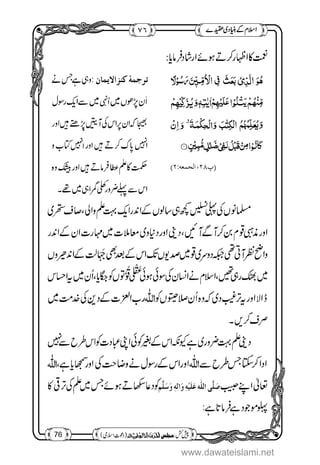 اسلام کے بنیادی عقیدے
۷۶
نعمت کا اظہار کرتے ہوئے ارشاد فرمایا:
هُوَ الَّذِیْ بَعَثَ فِی الْاُمِّیّٖنَ رَسُوْلًا
مِّنْهُمْ یَتْلُوْا عَلَیْهِمْ اٰیٰتِهٖ وَ یُزَكِّیْهِمْ
وَ یُعَلِّمُهُمُ الْكِتٰبَ وَ الْحِكْمَةَۗ وَ اِنْ
كَانُوْا مِنْ قَبْلُ لَفِیْ ضَلٰلٍ مُّبِیْنٍ
(پ۲۸، الجمعة:۲)
ترجمۂ کنز الایمان: وہی ہے جس نے
اَن پڑھوں میں انہیں میں سے ایک رسول
بھیجا کہ ان پر اس کی آیتیں پڑھتے ہیں اور
انہیں پاک کرتے ہیں اور انہیں کتاب و
حکمت کا علم عطا فرماتے ہیں اور بے شک وہ
اس سے پہلے ضرور کھلی گمراہی میں تھے۔
مسلمانوں کی پہلی نسلیں کچھ ہی سالوں کے اندر ایک بہت علم والی، صاف ستھری
اور مہذب قوم بن کر آگے آئیں، دینی، دنیاوی معاملات میں ان مہارت کے اندر
واضح نظر آتی تھی جبکہ دوسری قومیں صدیوں تک اس کے بعد بھی جہالت کے اندھیروں
میں بھٹک رہی تھیں، اسلام نے انسان کی سوئی ہوئی عقلی قوتوں کو جگایا، ان میں احساس
ڈالا اور یہ ترغیب دی کہ وہ ان صلاحیتوں کو اللہ رب العزت کے دین کی خدمت میں
صرف کریں۔
دینی علم بہت ضروری ہے کیونکہ اس کے بغیر کوئی اپنی عبادت کو اس طرح سے نہیں
ادا کر سکتا جس طرح سے اللہ اور اس کے رسول نے دین کی وضاحت کی اور سمجھایا ہے، اللہ
تعالیٰ اپنے حبیب صَلَّی اللہُ عَلَیْہِ وَاٰلِہٖ وَسَلَّم کو دعا سکھاتے ہوئے جس میں علم کی ترقی کا
پہلو موجود ہے فرماتا ہے:
76
www.dawateislami.net